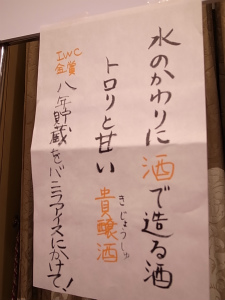 水のかわりに酒で造る酒
トロリと甘い貴醸酒
きじょうしゅ
IWC
金賞
八年貯蔵をバニラアイスにかけて!